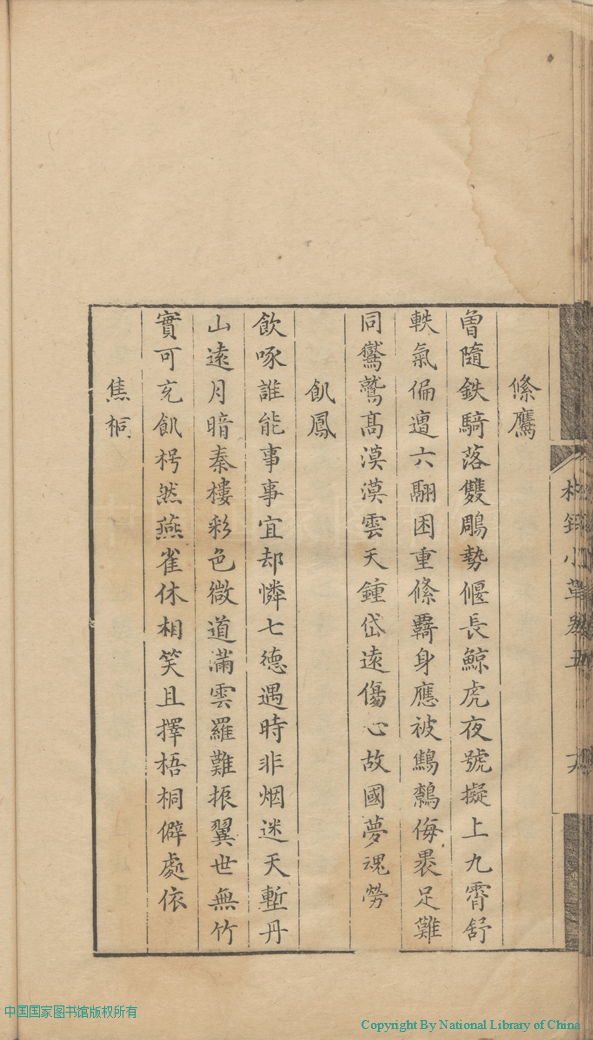 絛鷹
曾隨鉄騎落雙鵰勢偃長鯨虎夜號擬上九霄舒
軼氣偏遭六翮困重絛羈身應被鷦鷯侮褁足難
同鸞鷲髙漠漠雲天鍾岱遠傷心故國夢魂勞
飢鳳
飲啄誰能事事宜却憐七德遇時非烟迷天塹丹
山遠月暗秦樓彩色微道滿雲羅難振翼世無竹
實可充飢枵然燕雀休相笑且擇梧桐僻處依
焦桐
小草
中国国家图书馆版权所有
Copyright By National Library of China